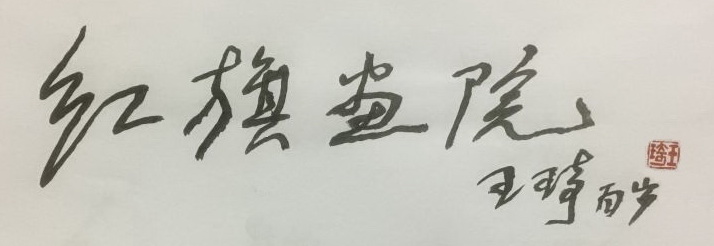 红旗画院
王琦百岁
王琦